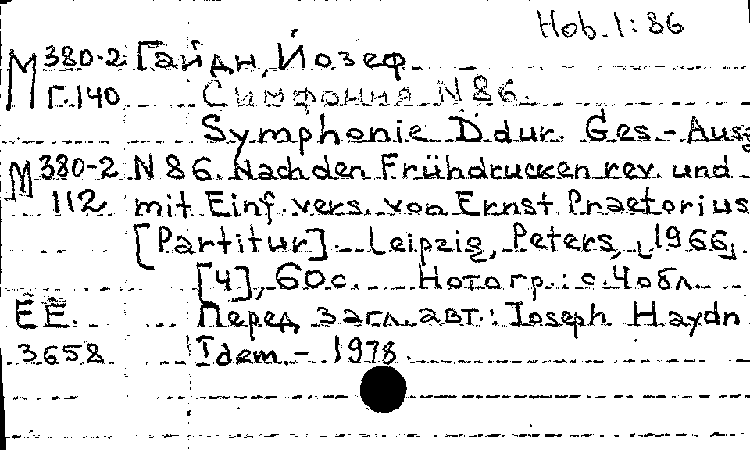 Hob. I : 86
М 380-2 Гайдн, Йозеф
Г.140 Симфония N 86.
Symphonie D dur. Ges.-Ausg
М 380-2 N 86. Nach den Frühdrucken rev. und
112 mit Einf. vers. von Ernst Praetorius
[Partitur]. Leipzig, Peters, [1966].
[4], 60 с. Нотогр.: с. 4 обл.
ЕЕ. Перед загл. авт.: Joseph Haydn
3658 Idem. - 1978.